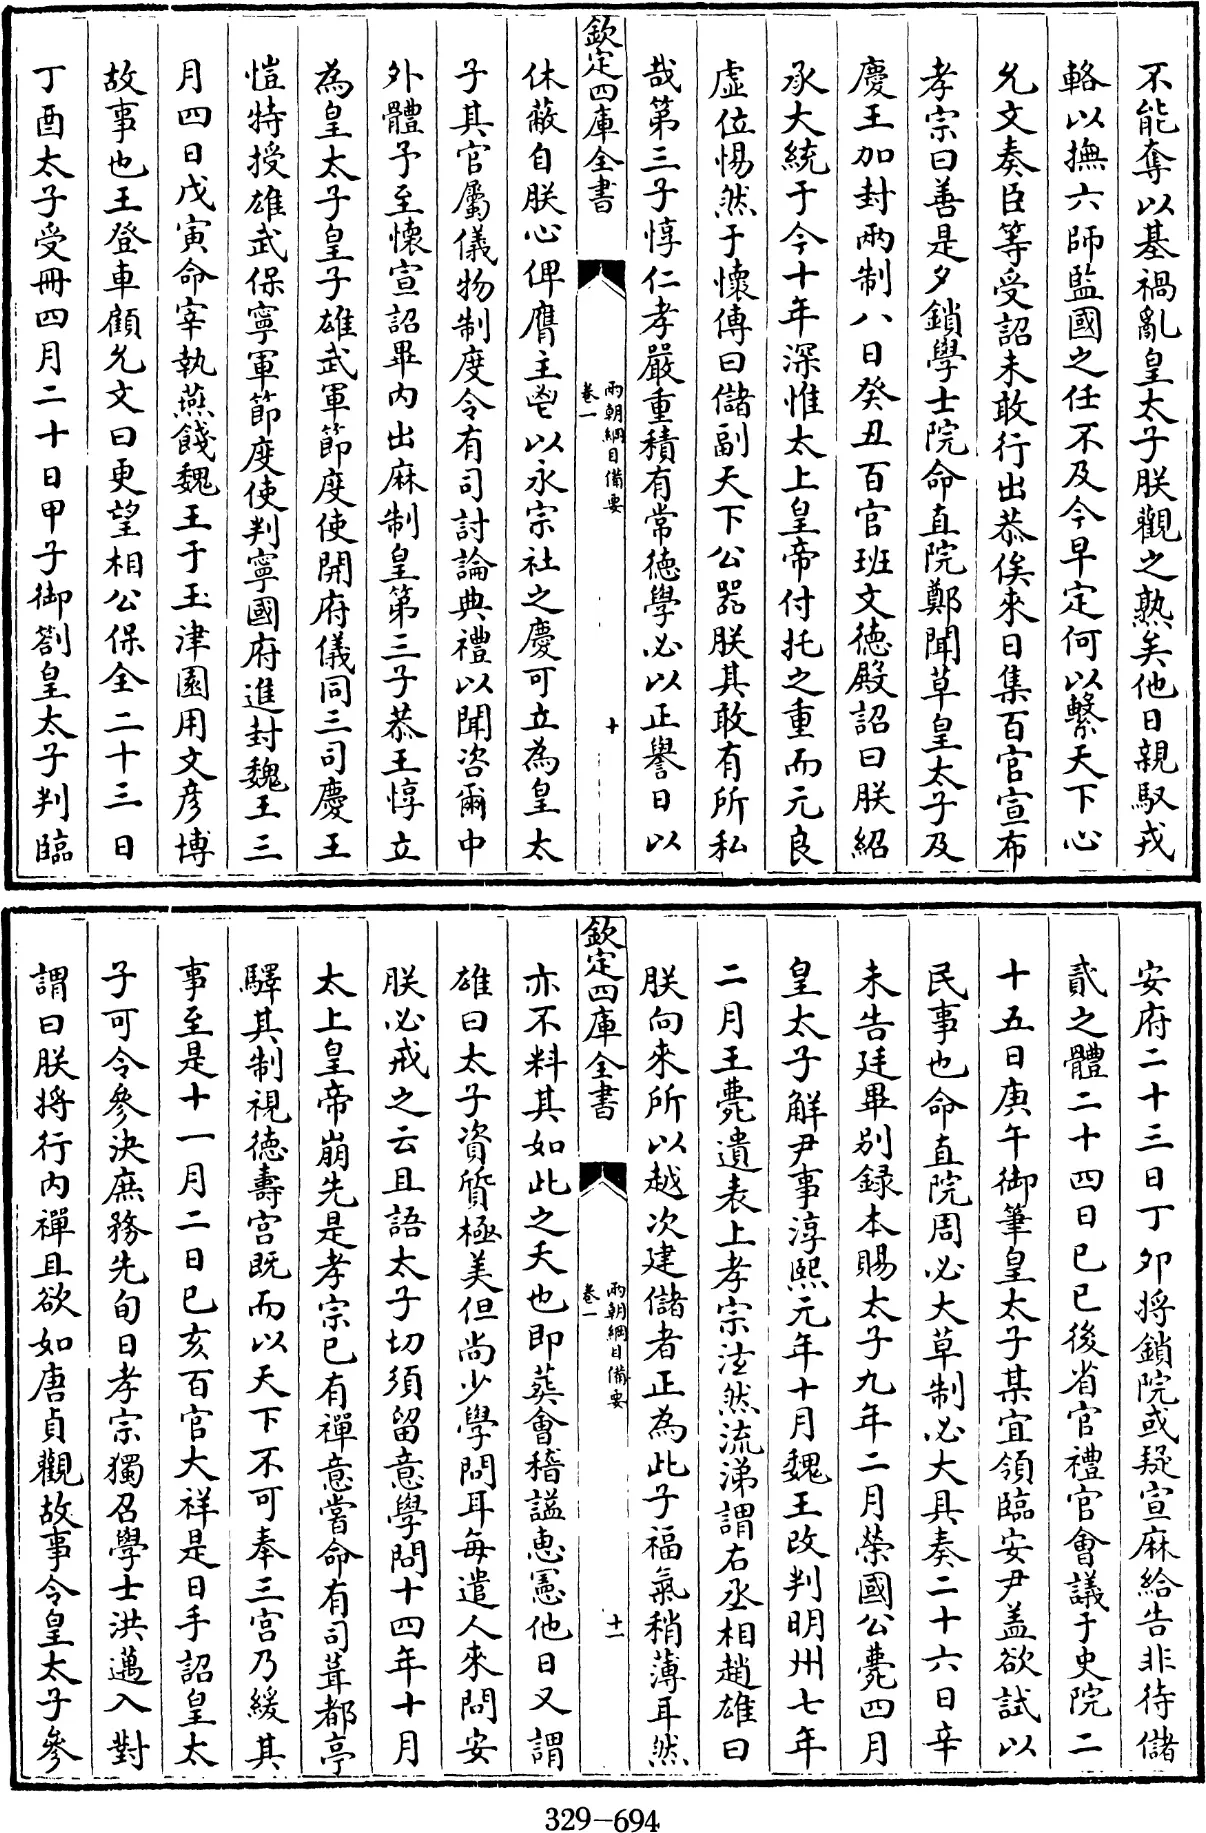 不能奪以基禍亂皇太子朕觀之熟矣他日親馭戎
輅以撫六師監國之任不及今早定何以繫天下心
允文奏臣等受詔未敢行出恭俟來日集百官宣布
孝宗曰善是夕鎖學士院命直院鄭聞草皇太子及
慶王加封兩制八日癸丑百官班文德殿詔曰朕紹
承大統于今十年深惟太上皇帝付托之重而元良
虛位惕然于懷傳曰儲副天下公器朕其敢有所私
哉第三子惇仁孝嚴重積有常德學必以正譽日以
欽定四庫全書
兩朝綱目備要
卷一
十
休蔽自朕心俾膺主鬯以永宗社之慶可立為皇太
子其官屬儀物制度令有司討論典禮以聞咨爾中
外體予至懷宣詔畢內出麻制皇第三子恭王惇立
為皇太子皇子雄武軍節度使開府儀同三司慶王
愷特授雄武保寧軍節度使判寧國府進封魏王三
月四日戊寅命宰執燕餞魏王于玉津園用文彥博
故事也王登車顧允文曰更望相公保全二十三日
丁酉太子受冊四月二十日甲子御劄皇太子判臨
安府二十三日丁卯將鎖院或疑宣麻給告非待儲
貳之體二十四日已巳後省官禮官會議于史院二
十五日庚午御筆皇太子某宜領臨安尹盖欲試以
民事也命直院周必大草制必大具奏二十六日辛
未告廷畢別錄本賜太子九年二月榮國公薨四月
皇太子解尹事淳熙元年十月魏王改判明州七年
二月王薨遺表上孝宗泫然流涕謂右丞相趙雄曰
朕向來所以越次建儲者正為此子福氣稍薄耳然
欽定四庫全書
兩朝綱目備要
卷一
十一
亦不料其如此之夭也即葬會稽諡惠憲他日又謂
雄曰太子資質極美但尚少學問耳每遣人來問安
朕必戒之云且語太子切須留意學問十四年十月
太上皇帝崩先是孝宗已有禪意嘗命有司葺都亭
驛其制視德壽宮既而以天下不可奉三宮乃緩其
事至是十一月二日已亥百官大祥是日手詔皇太
子可令參決庶務先旬日孝宗獨召學士洪邁入對
謂曰朕將行內禪且欲如唐貞觀故事令皇太子參
329-694